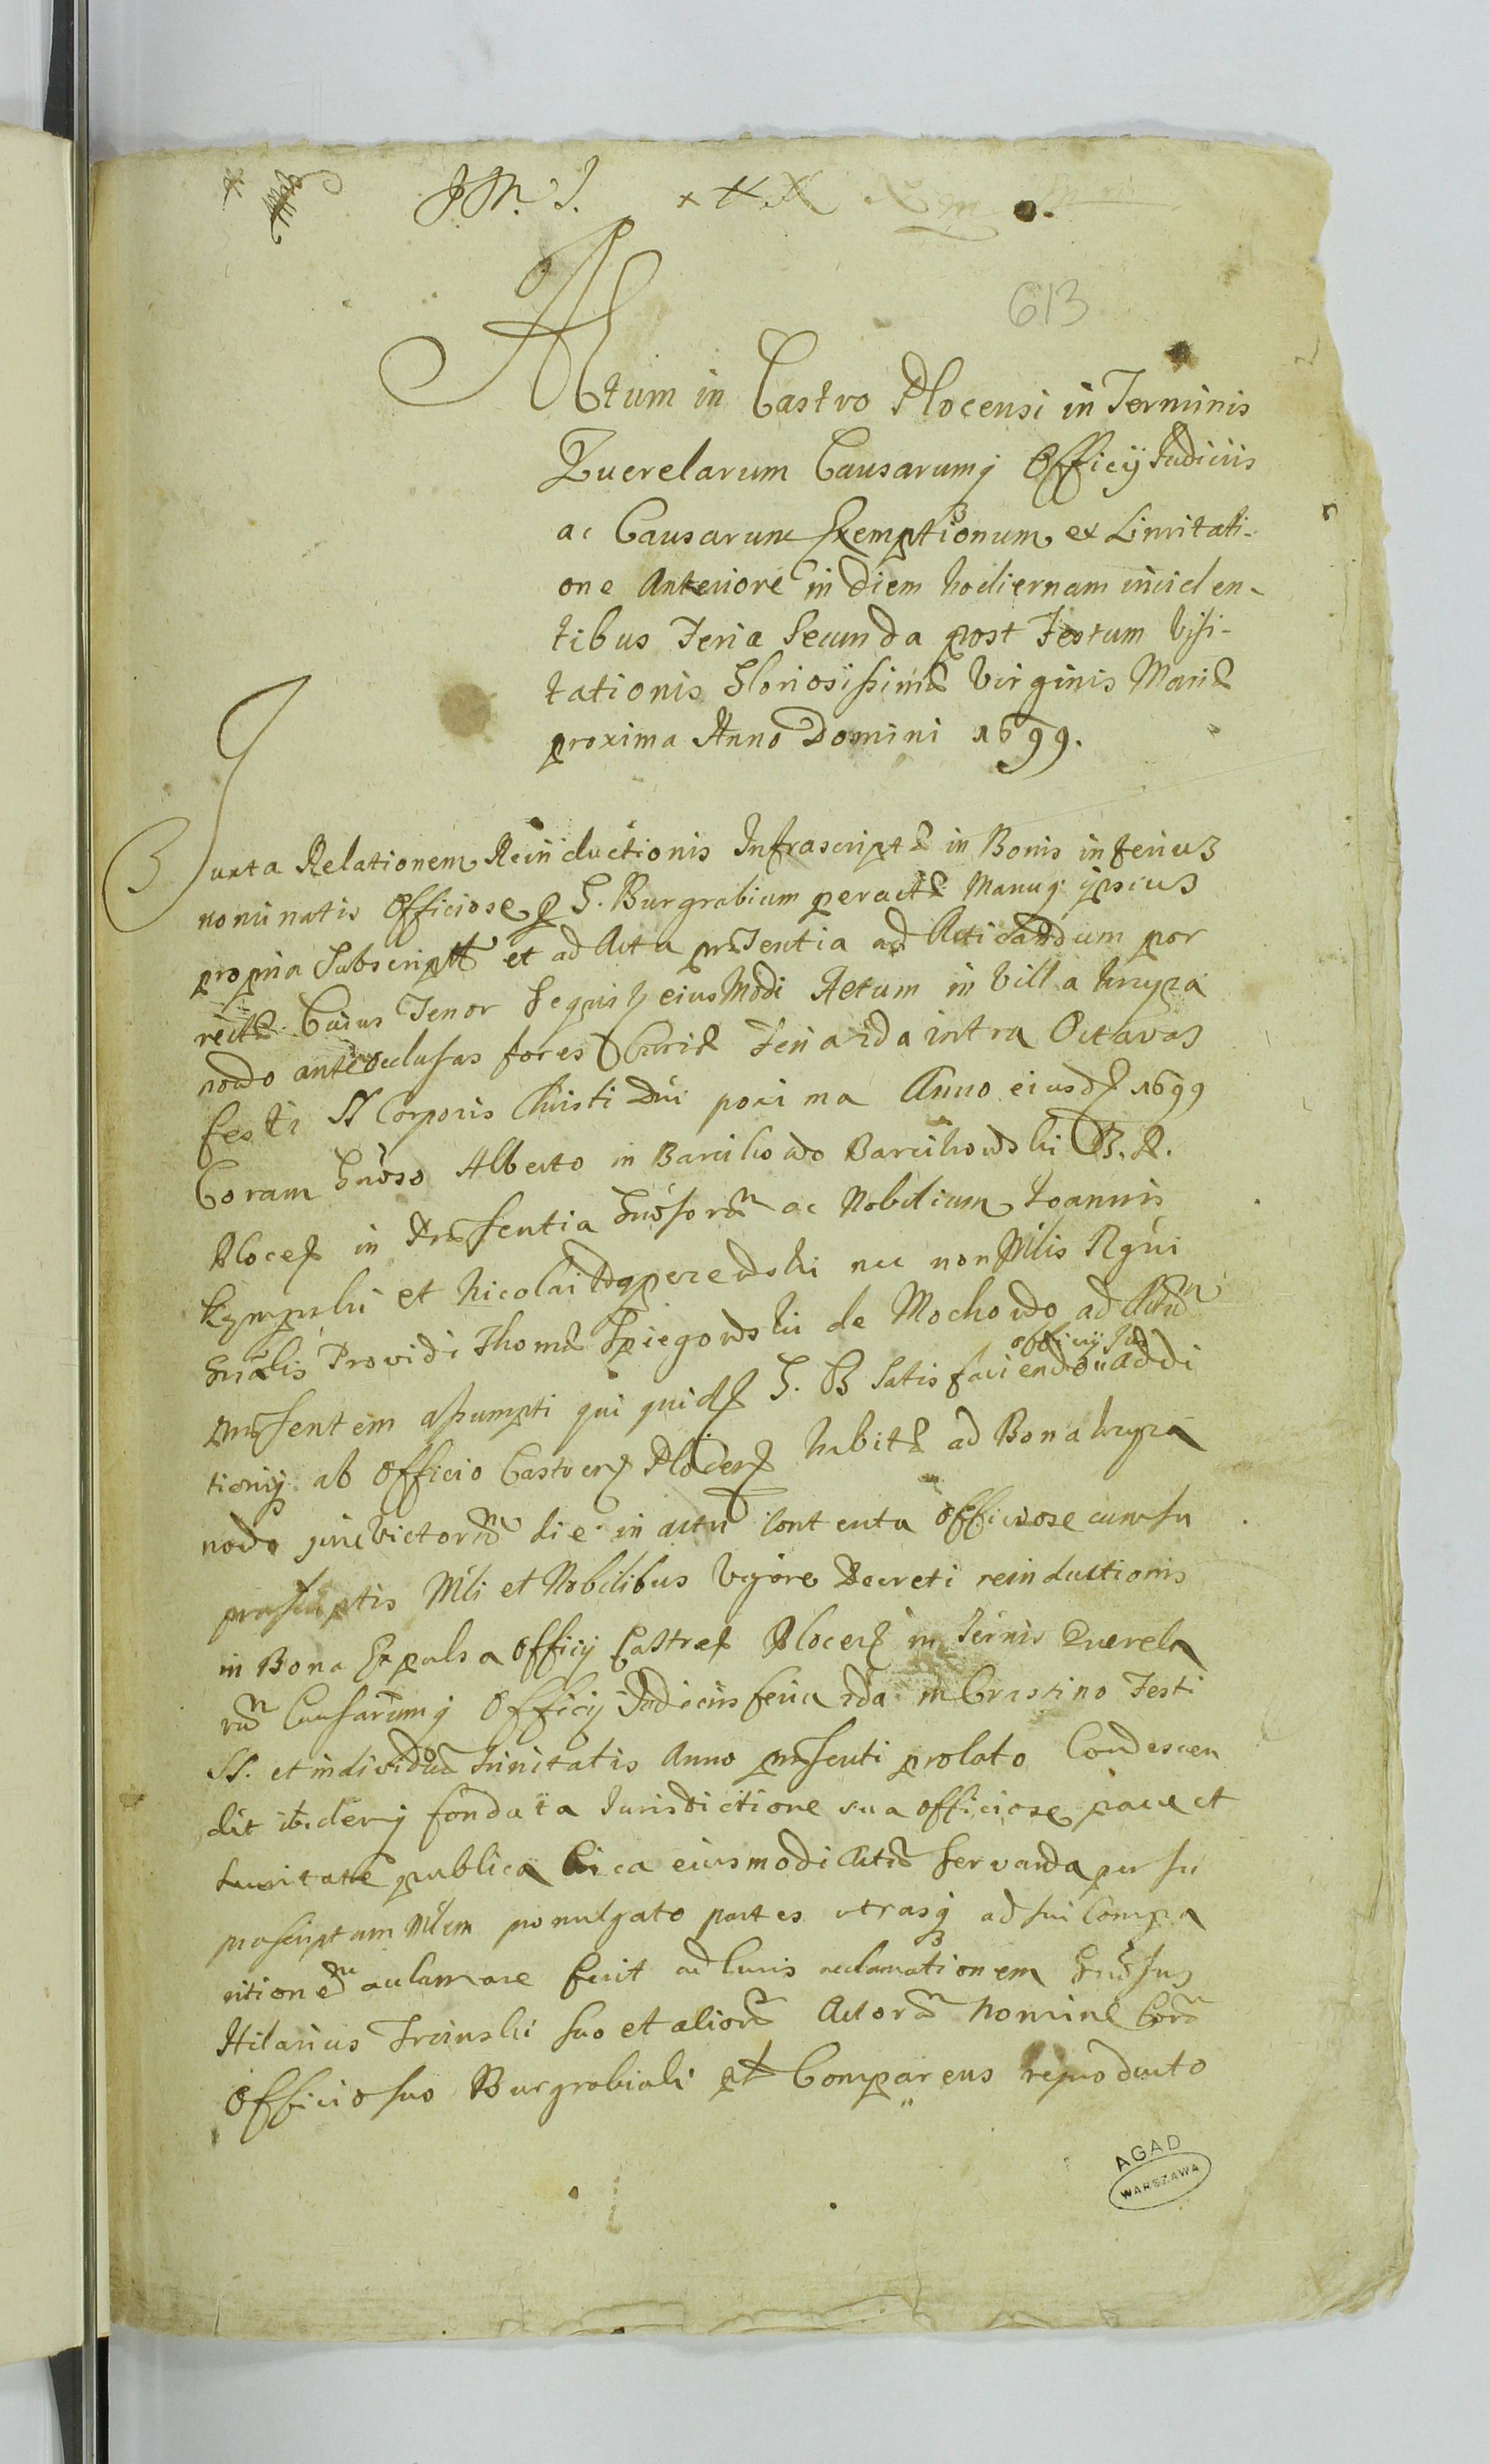 J M. J.
613
Actum in Castro Plocensi in Terminis
Querelarum Causarumq Officij Judiciis
ac Causarum Exemptionum ex Limitati-
one Anteriore in diem hodiernam inciden-
tibus Feria Secunda post Festum Visi-
tationis Gloriosissimæ Virginis Mariæ
proxima Anno Domini 1699.
Juxta Relationem Reinductionis Infrascriptæ in Bonis inferius
nominatis Officiose p G. Burgrabium peractæ Manuq ipsius
propria Subscriptæ et ad Acta præsentia ad Acticandum por
rectæ Cuius Tenor Sequitur eiusmodi Actum in Villa Krzyza
nowo ante occlusas fores Curiæ Feria 2da intra Octavas
festi SS Corporis Christi Dni poxima Anno eiusd 1699
Coram Gnoso Alberto in Barcikowo Barcikowski B. P.
Plocen in Præsentia Gnosorum ac Nobilium Joannis
Kempski et Nicolai nec non Mlis Rgni
Gnalis Providi Thomæ Spiegowski de Mochowo ad Actum
officij Ju
prnsentem assumpti qui quidem G. B Satisfaciendo addi
tionis ab Officio Castren Plocen habitæ ad Bona Krzyza
nowo die in actu contenta Officiose cum su
prascriptis Mli et Nobilibus Vigore Decreti reinductionis
in Bona Expulsa Officij Castren Plocen in Ternis Querela
rum Causarumq Officij Judiciis feria 2da in Crastino Festi
SS. et individuæ Trinitatis Anno prnsenti prolato Condescen
dit ibidemq fondata Jurisdictione sua officiose pace et
securitate publica circa eiusmodi Actum servanda per su
prascriptum Mlem promulgato partes utrasq ad sui Compa
ritionem acclamare fecit ad Cuius acclamationem Gnosus
Hilarius suo et aliorum Actorum Nomine Coram
Officio suo Burgrabiali pt Comparens reproducto
AGAD
WARSZAWA